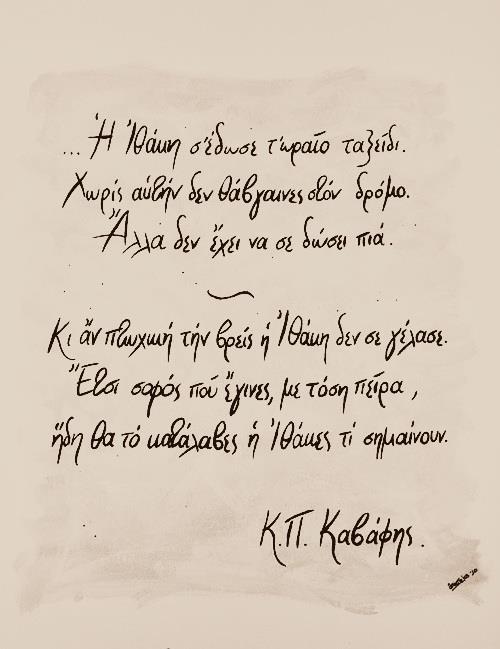 ...Ἡ Ἰθάκη σ'έδωσε τ'ωραῖο ταξείδι.
Χωρίς αὐτήν δεν θάβγαινες στόν δρόμο.
Ἄλλα δεν ἔχει να σε δώσει πιά.
Κι ἄν πτωχική τήν βρεῖς ἡ Ἰθάκη δεν σε γέλασε.
Ἔτσι σοφός πού ἔγινες, με τόση πεῖρα,
ἤδη θα τό κατάλαβες ἡ Ἰθάκες τί σημαίνουν.
Κ.Π. Καβάφης.